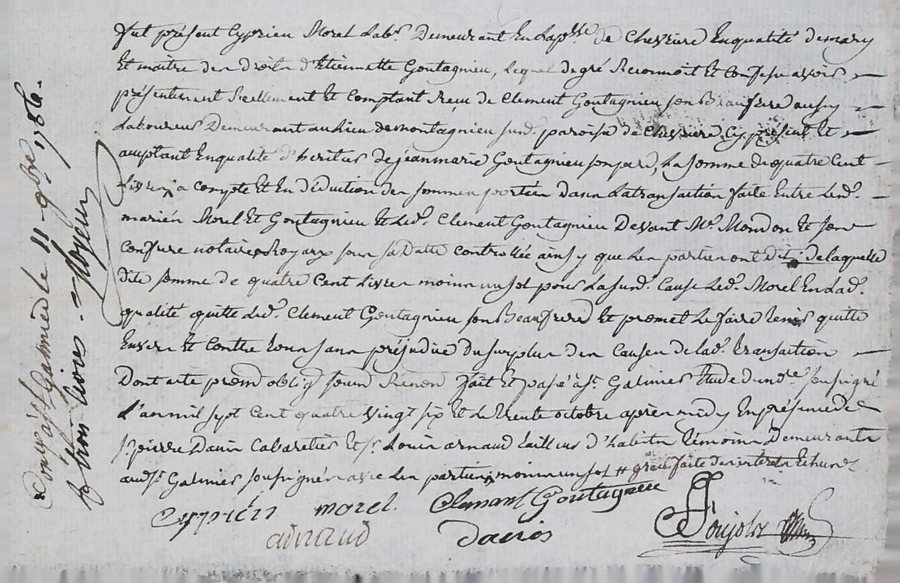 fut présent Cyprien Morel lab.r Demeurant En lap.sse de Chevriere Enqualité demary
Et maitre des droits d'Etiennette Goutagnieu, lequel degré Reconnoit Et Confesse avoir
présentement Réellement Et Comptant Reçu de Clement Goutagnieu son Beaufrere aussy
Laboureur Demeurant au lieu de montagnieu sud.t paroisse de Chevriere Cy présent Et
acceptant Enqualité d'heritier de jeanmarie Goutagnieu son pere, La somme de quatre Cent
Livres a compte Et En déduction des sommes portées dans la transaction faite Entre lesd.
mariés Morel Et Goutagnieu Et led. Clement Goutagnieu Devant M.e Mondon Et son
Confrere notaires Royaux sous sa Datte controllée ainsy que les parties ont dit, de laquelle
dite somme de quatre Cent livres moins un sol pour la susd. Cause led. Morel En lad.
qualité quitte led. Clement Goutagnieu son Beaufrere Et promet le faire tenir quitte
Envers Et Contre tous sans préjudice du surplus des Causes de lad. transaction
Dont acte prom. obl.g soum.s Renon. fait Et passé à S.t Galmier Etude du n.re soussigné
L'an mil sept Cent quatre vingt six Et le trente octobre après midy En présence de
S.r pierre Davis Cabaretier Et S.r Louis arnaud tailleur d'habits témoins Demeurants
aud. S.t Galmier soussignés avec les parties moins un sol # grace faite des interets Echus
Cyprien morel Clemant Goutagnieu
arnaud davis Poujolz
Con.lé à S.t Galmier le 11 9bre 1786.
R. trois livres